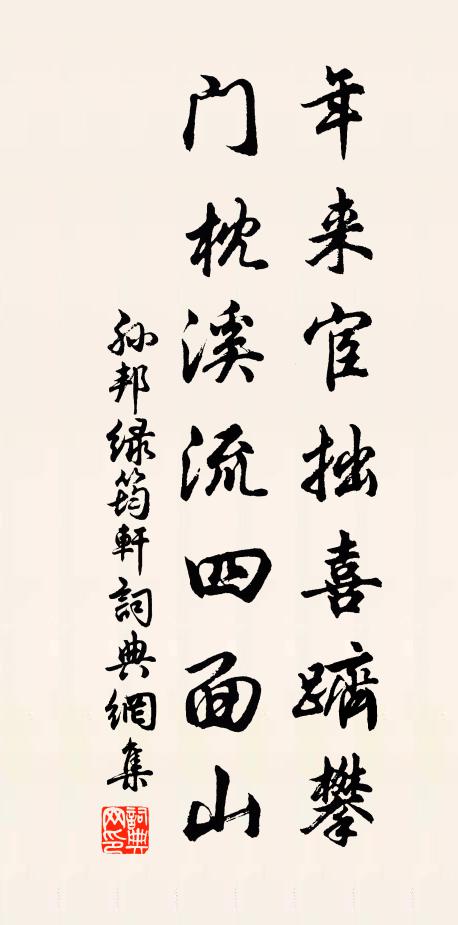 年来宦拙喜躋攀
门枕溪流四面山
孙邦绿筠軒詞典網集
詞典
网印